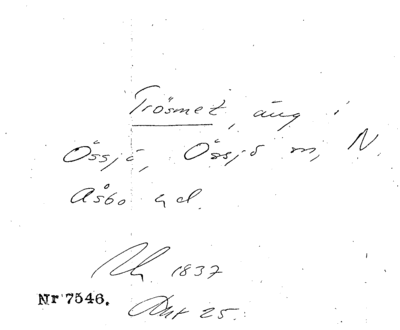 Trösmet, äng i
Össjö, Össjö sn, N.
Åsbo hd.
1837
Nr 7546. Akt 25.